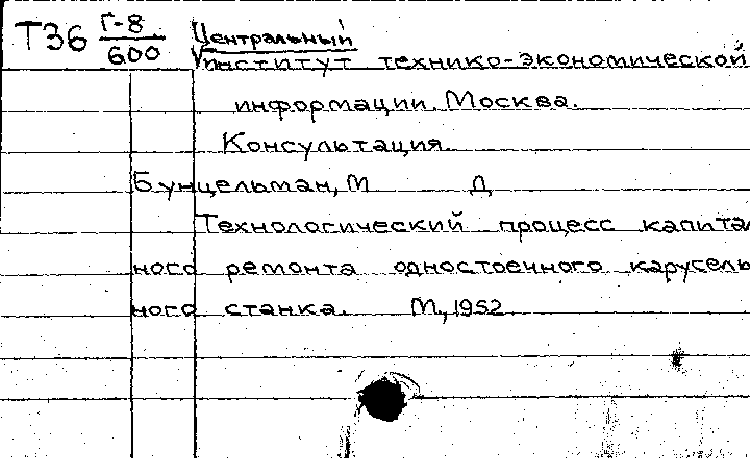 Т36 Г-8/600 Центральный
институт технико-экономической
информации. Москва.
Консультация.
Бунцельман, М Д
Технологический процесс капиталь
ного ремонта одностоечного карусель
ного станка. М., 1952